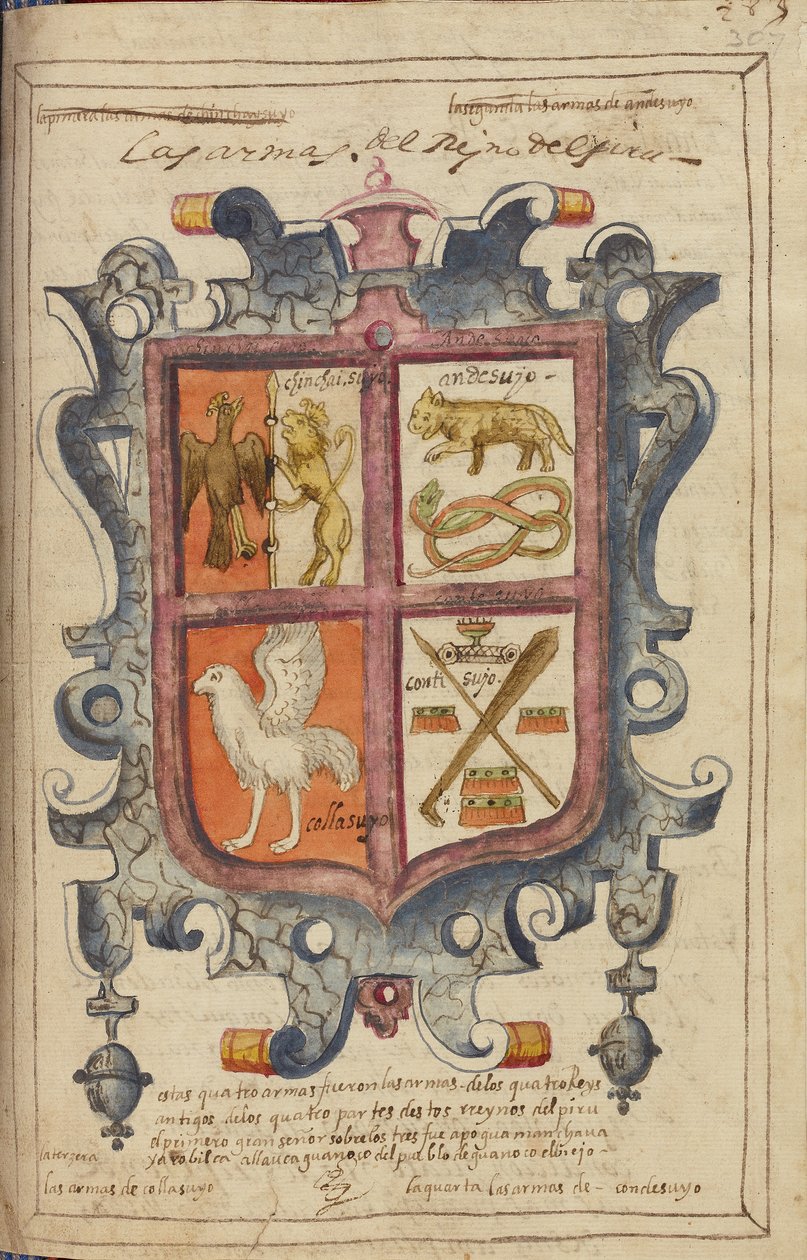 307
la primera las armas de chinchaysuyo
la segunda las armas de andesuyo
Las armas. del Reyno del piru —
Andesuyo
chinchai.suyo.
andesuyo —
conde suyo
conti suyo.
collasuyo
estas quatro armas fueron las armas - de los quatro Reys
antigos de los quatro partes destos rreynos del piru
el primero gran señor sobre los tres fue apo guamanchaua
yarobilca allauca guanoco del pueblo de guanoco el biejo —
la terzera
las armas de collasuyo
la quarta las armas de — condesuyo